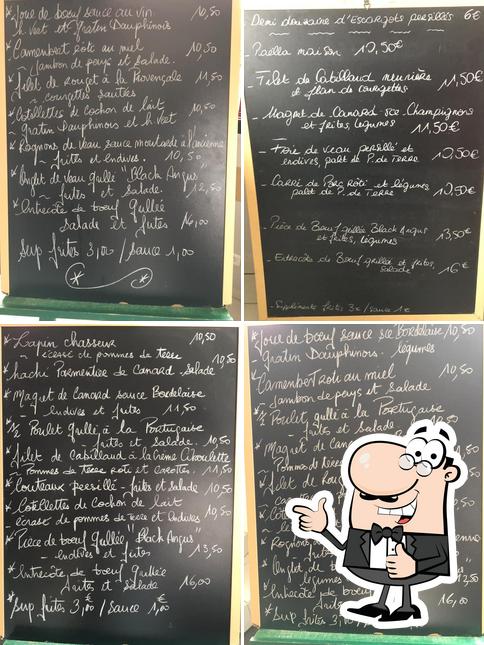 * Joue de bœuf sauce au vin 10,50
h. Vert et Gratin Dauphinois
* Camembert Roti au miel 10,50
Jambon de pays et Salade.
* filet de Rouget à la Provençale 11,50
~ courgettes sautées
* Cotellettes de cochon de lait 10,50
~ gratin Dauphinois et h. Vert
* Rognons de Veau sauce moutarde à l'ancienne
~ frites et Endives. 10,50
* Onglet de veau grillé "Black Angus"
~ frites et salade. 12,50
* Entrecôte de bœuf Grillée
Salade et frites 16,00
Sup frites 3,00 / sauce 1,00
Demi douzaine d'Escargots persillés 6€
- Paella maison 12,50€
- Filet de Cabillaud meunière
et flan de courgettes 11,50€
- Magret de Canard sce Champignons
et frites, légumes 11,50€
- Foie de veau persillé et
endives, palet de P. de Terre 10,50€
- Carré de Porc Rôti et légumes,
palet de P. de Terre 10,50€
- Pièce de Bœuf grillée Black Angus
et frites, légumes 13,50€
- Entrecôte de Bœuf grillée et frites,
salade 16€
- Supplément frites 3€ / sauce 1€
* Lapin chasseur 10,50
~ écrasé de pommes de terre
* hachi Parmentier de Canard Salade 10,50
* Magret de Canard sauce Bordelaise
- Endives et frites 11,50
* 1/2 Poulet Grillé à la Portugaise
- frites et Salade. 10,50
* filet de Cabillaud à la Crème Ciboulette
Pommes de Terre Roti et carottes. 11,50
* Couteaux persillé - frites et Salade 10,50
* Cotellettes de Cochon de lait
- écrasé de pommes de terre et Endives 10,50
* Pièce de bœuf Grillée "Black Angus"
- Endives et frites 13,50
* Entrecôte de bœuf Grillée
frites et Salade 16,00
* Sup frites 3,00€ / Sauce 1,00€
* Joue de bœuf sauce sce Bordelaise 10,50
Gratin Dauphinois. légumes
* Camembert Roti au miel 10,50
Jambon de pays et Salade
* 1/2 Poulet grillé à la Portugaise
- frites et Salade 10,50
* Magret de Can
- Pommes de Terre
* filet de Rou
* Co
* Rognons enne
* Onglet de
légumes 12,50
* Entrecôte de bœu
frites 16,00
* Sup frites 3,00 /